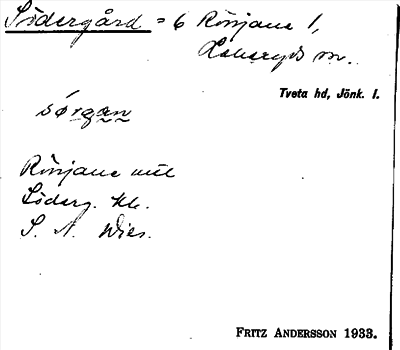 Södergård = 6 Rörjans 1,
Lekeryds sn.
Tveta hd, Jönk. l.
sörgan
Rörjans
Söderg. Kb.
S. A. Wies.
FRITZ ANDERSSON 1933.